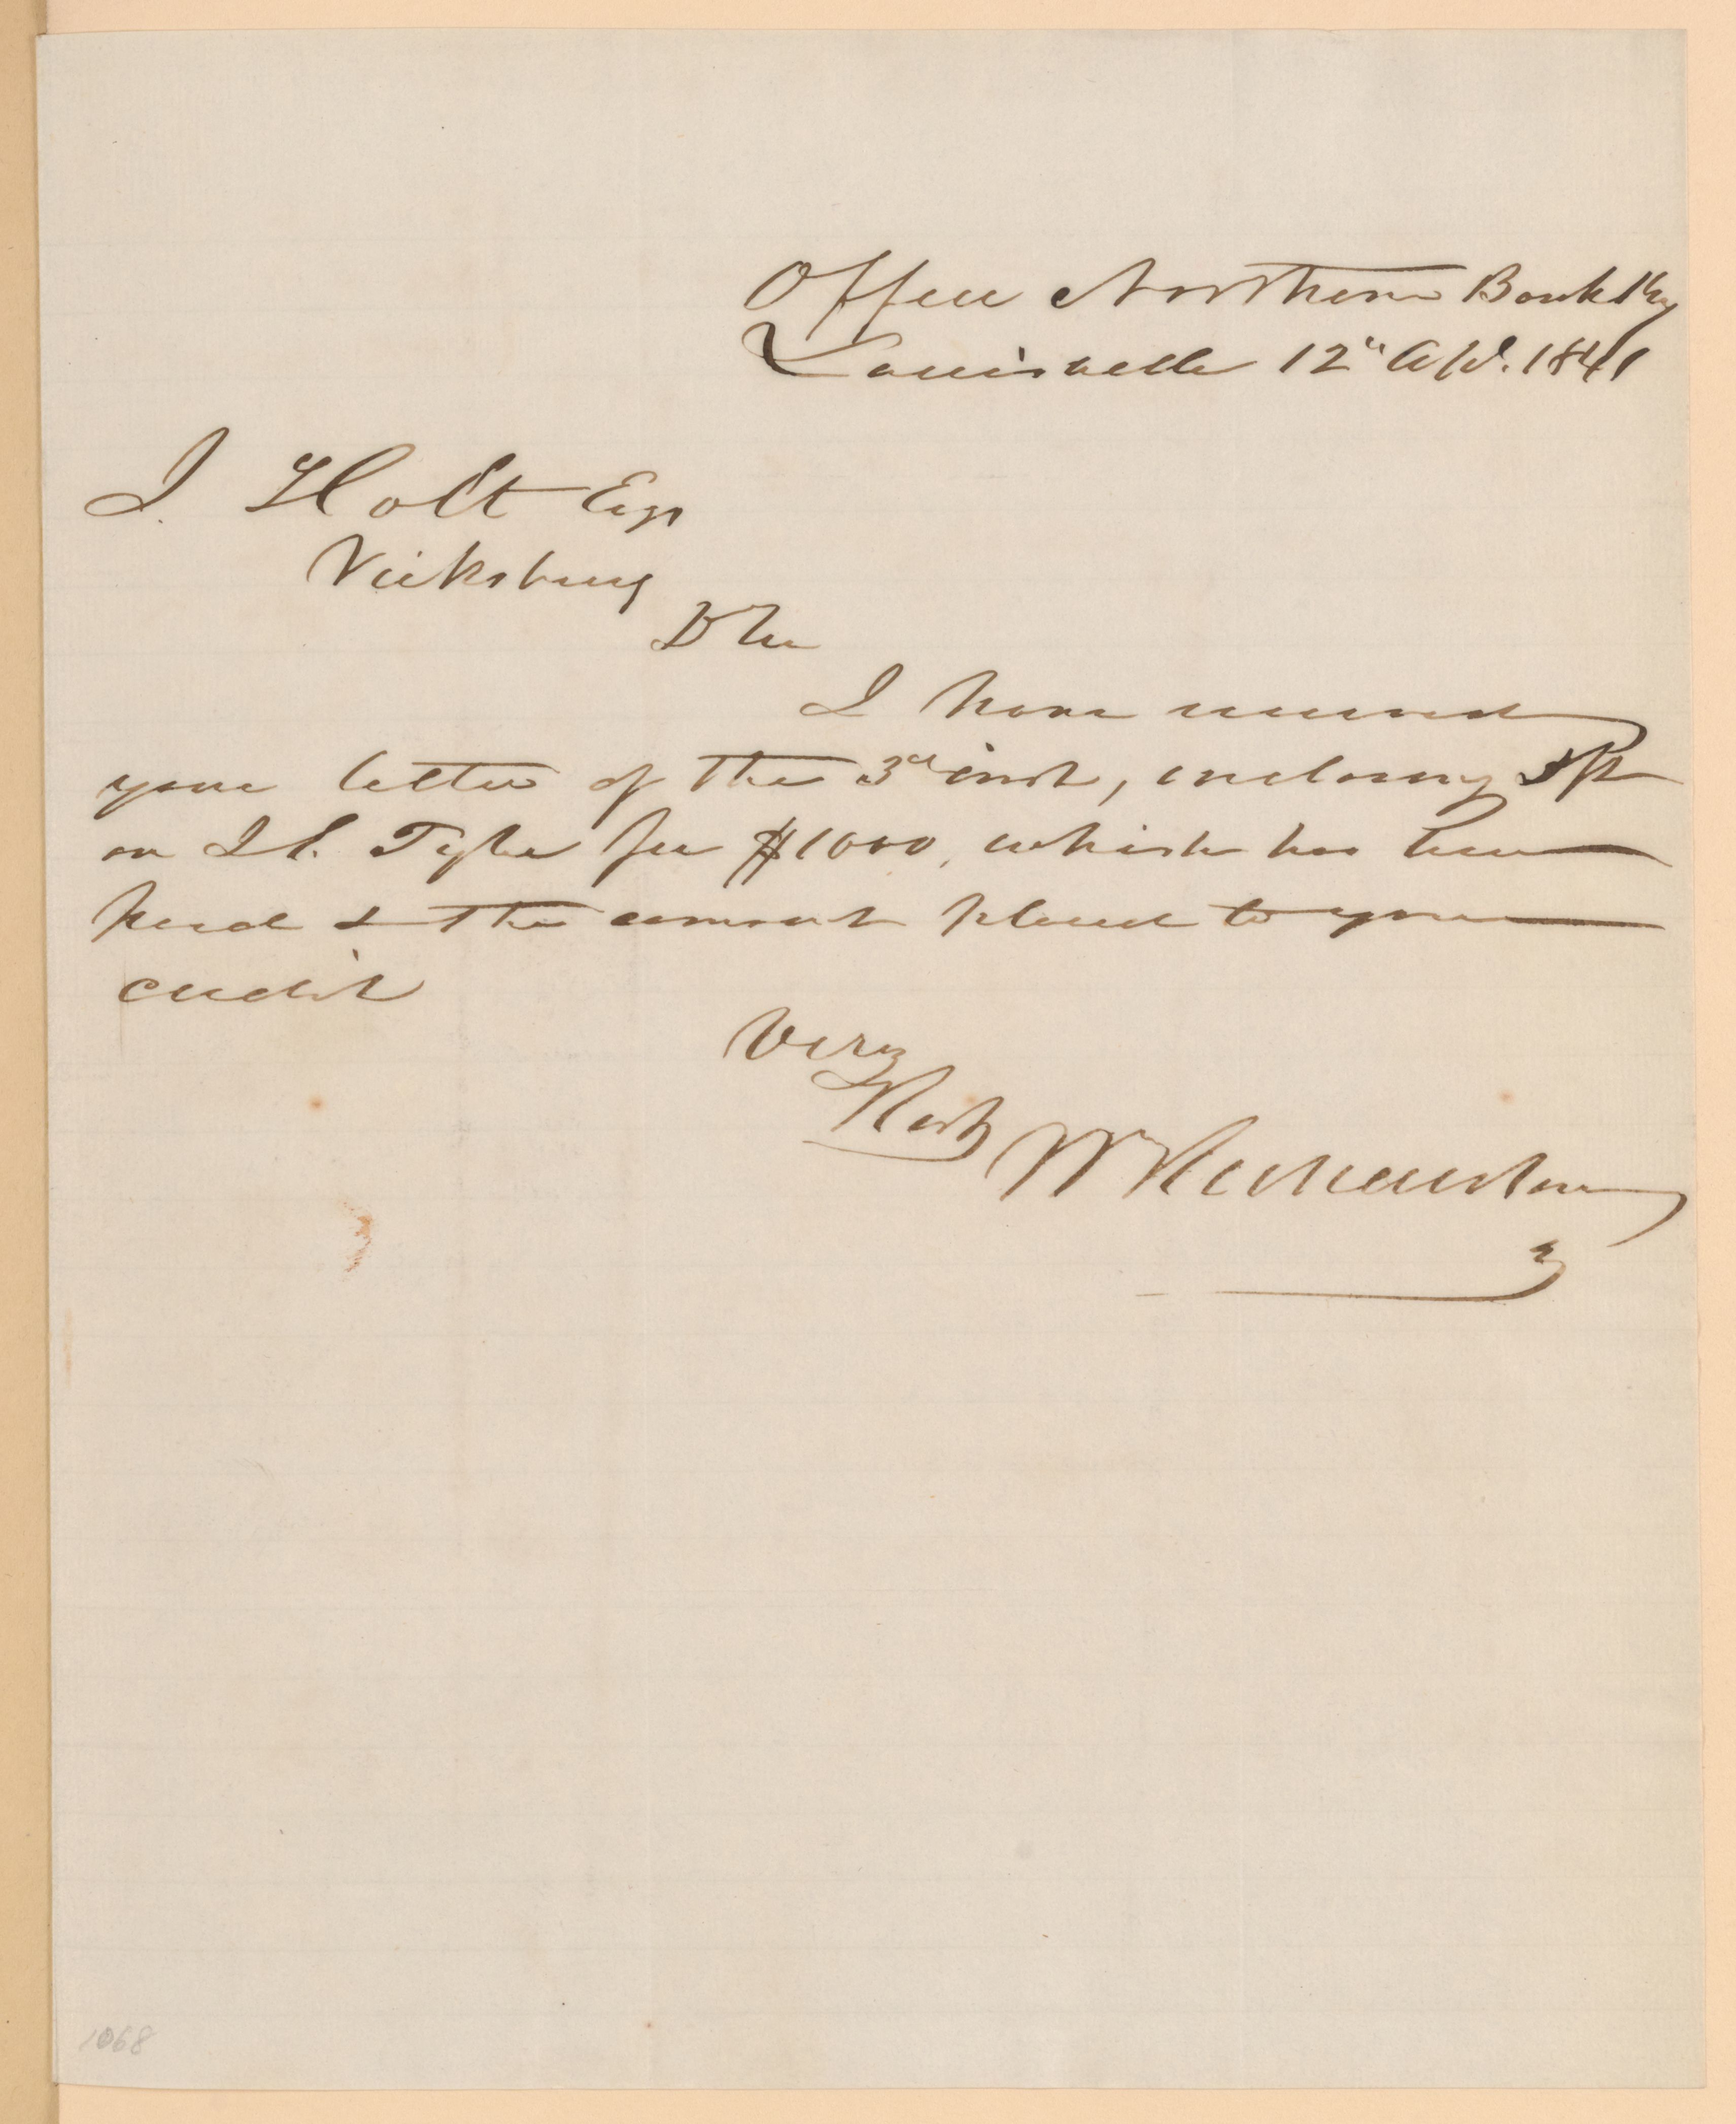 Office Northern Bank Ky
Louisville 12" Apl. 1841
J. Holt Esqr
Vicksburg
D Sir
I have received
your letter of the 3d inst, inclosing
on I. L. Tyler for $1000, which has been
paid & the amount placed to your
credit
Very
Resty
Wm Richardson
1068